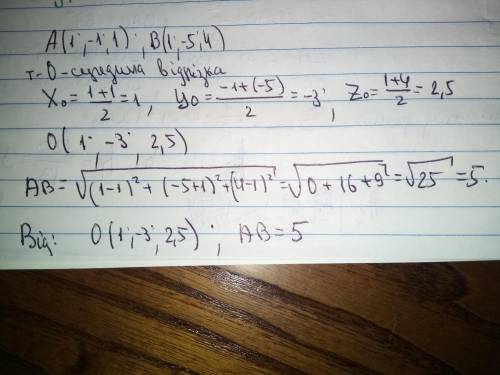 A(1; -1; 1); B(1; -5; 4)
т-О-середина відрізка
X₀ = (1+1)/2 = 1, y₀ = (-1+(-5))/2 = -3; Z₀ = (1+4)/2 = 2,5
O(1; -3; 2,5)
AB = √((1-1)² + (-5+1)² + (4-1)²) = √(0+16+9) = √25 = 5.
Від: O(1; -3; 2,5); AB = 5